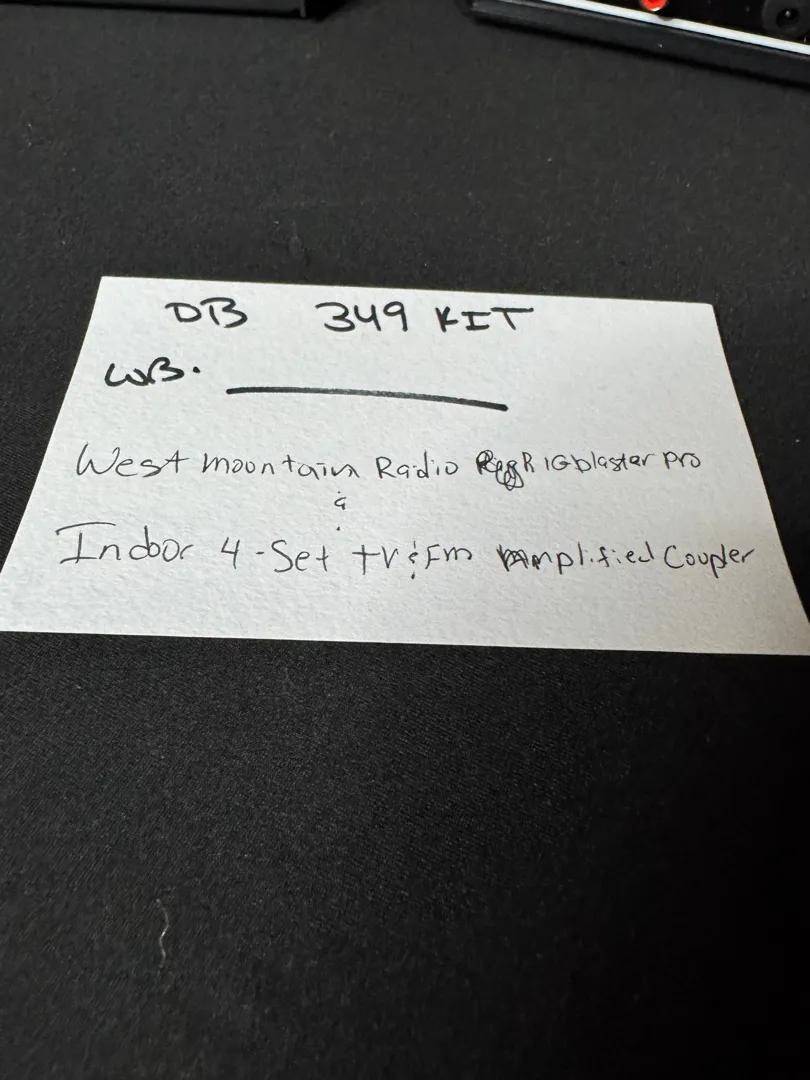 DB 349 KIT
WB.
West mountain Radio RIGblaster pro
&
Indoor 4-Set TV & Fm Amplified Coupler